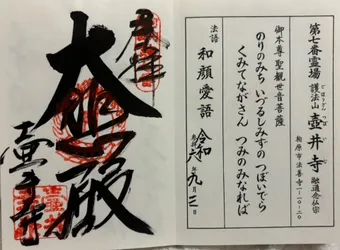 第七番霊場
護法山 壺井寺 融通念仏宗
ごほうざん つぼいでら
柏原市法善寺一-一〇-二〇
御本尊 聖観世音菩薩
のりのみち いづるしみずの つぼいでら
くみてながさん つみのみなれば
法語 和顔愛語
令和六年九月三日
奉拝
大悲殿
壺井寺